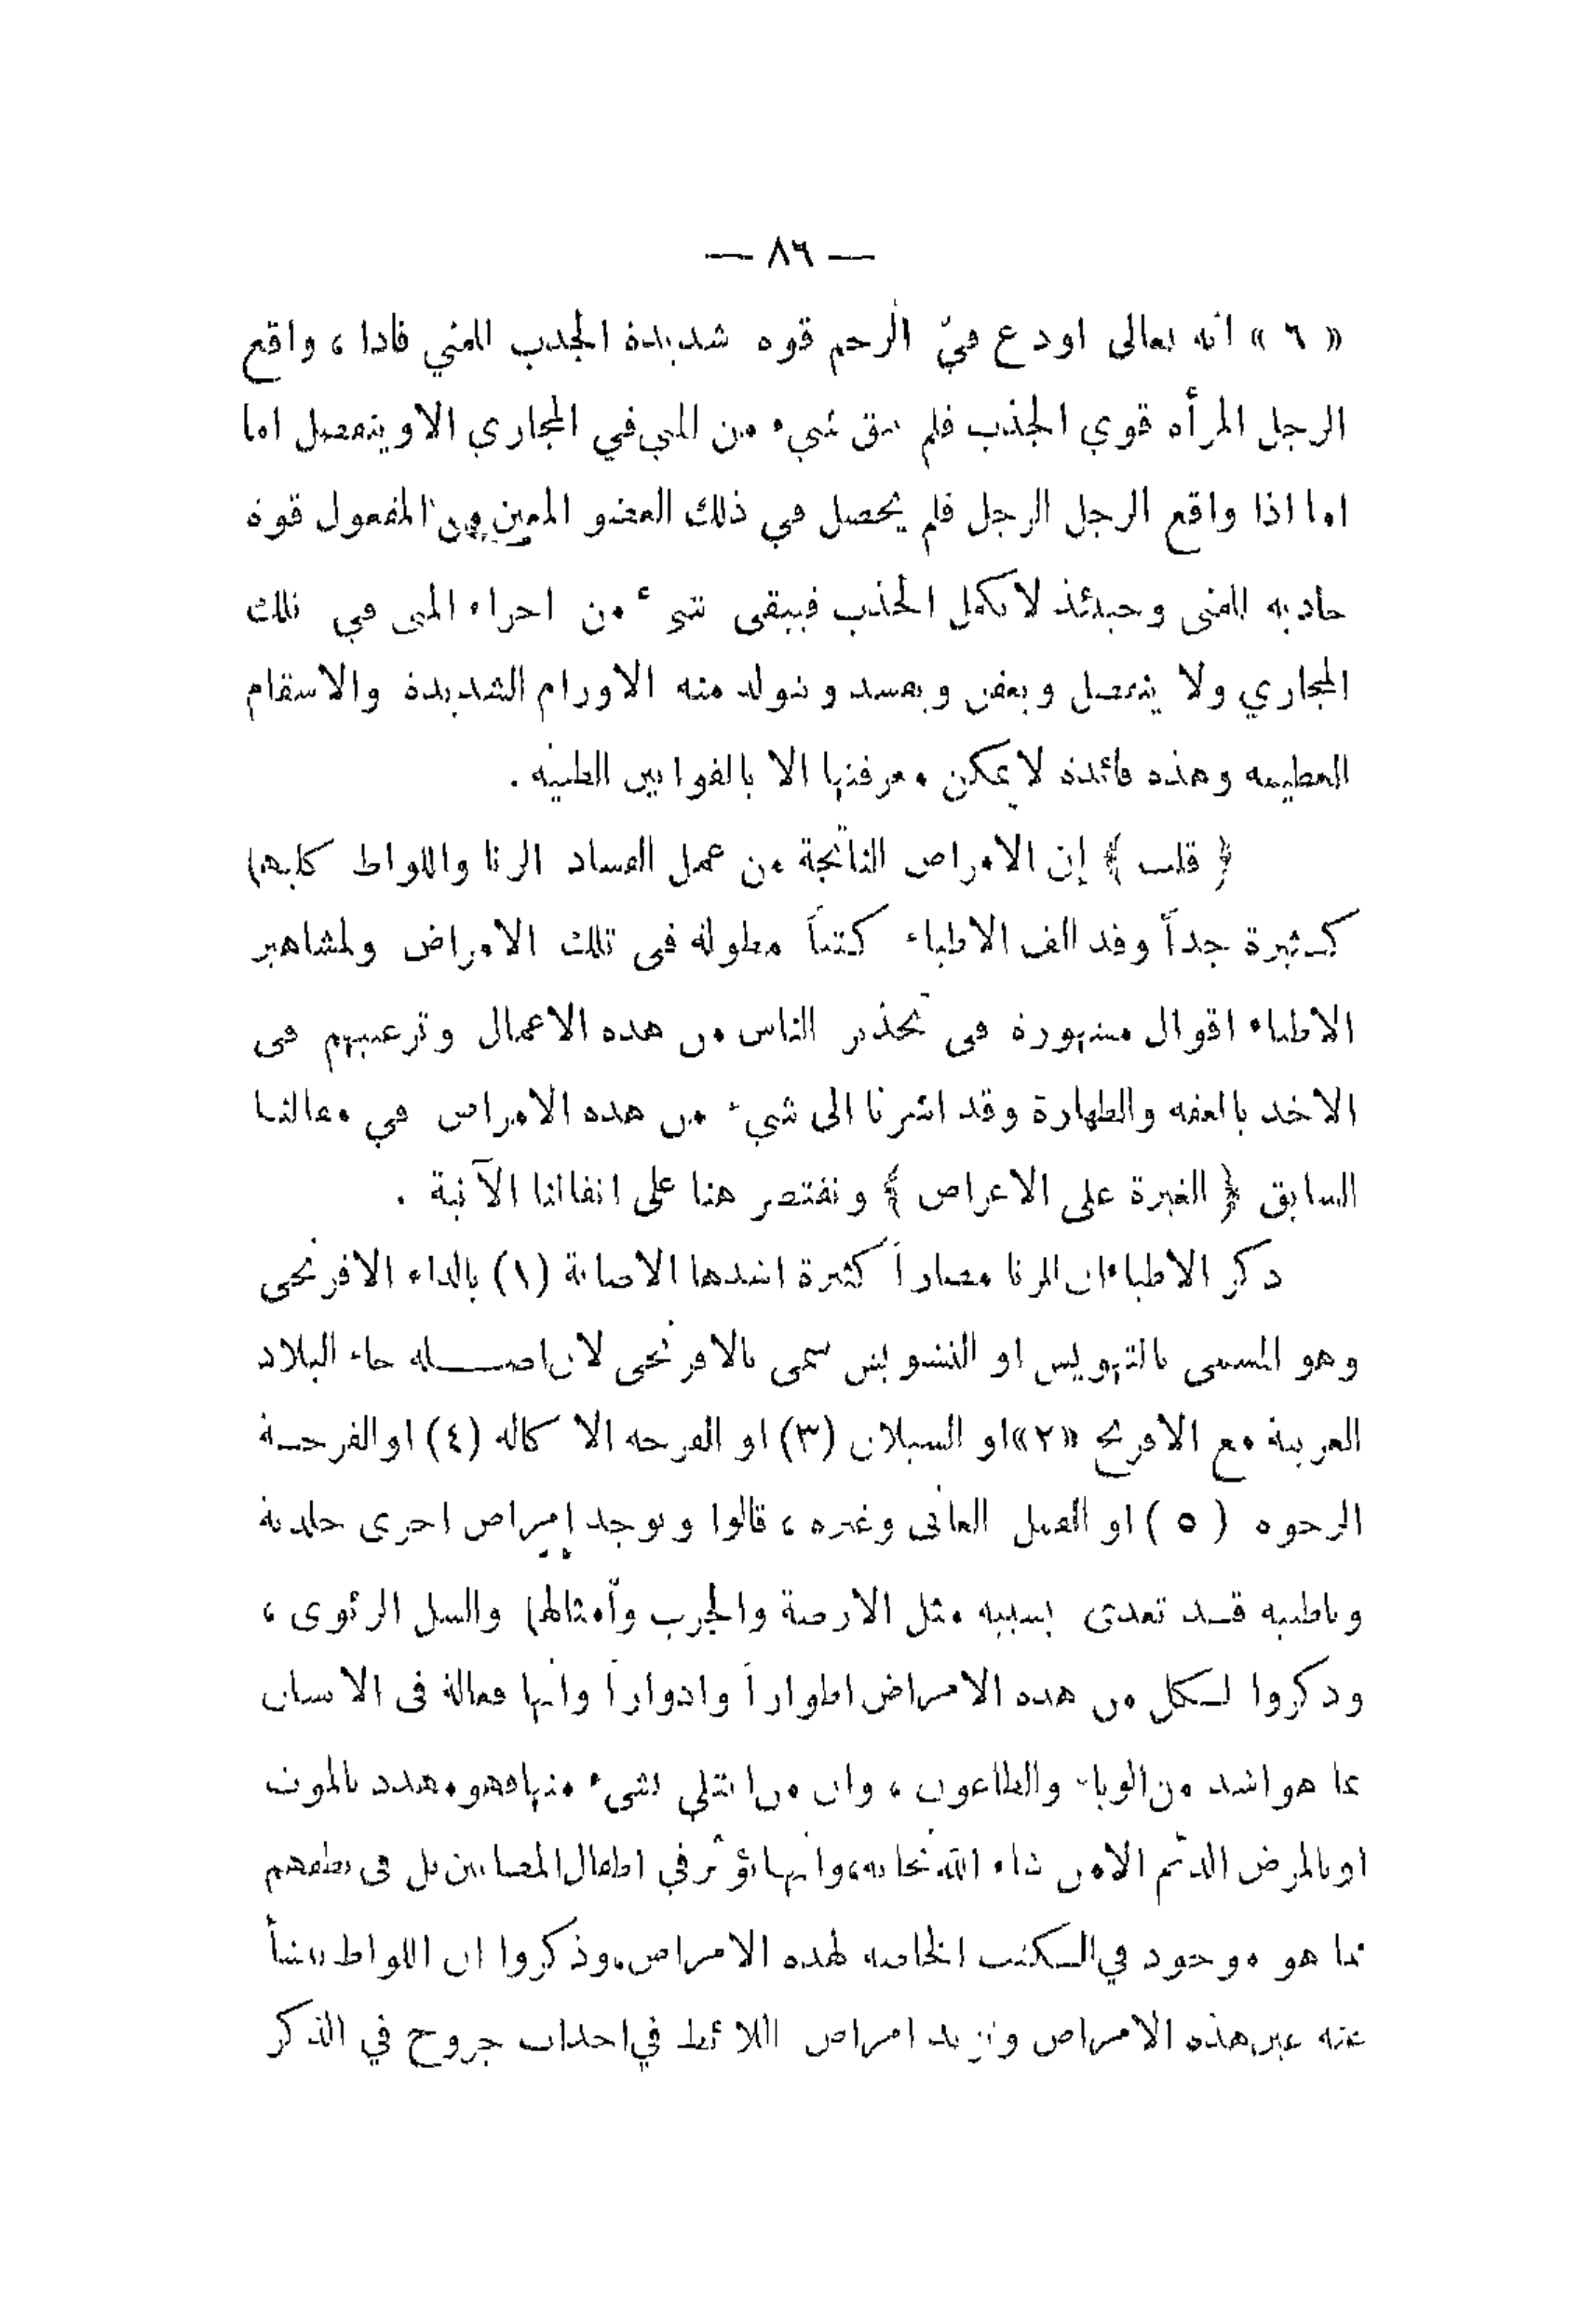 — ٨٦ —
« ٦ » انه تعالى اودع في الرحم قوة شديدة الجذب للمني فاذا ، واقع
الرجل المرأه قوي الجذب فلم يبق شيء من المني في المجاري الا وينفصل اما
اما اذا واقع الرجل الرجل فلم يحصل في ذلك العضو المعين من المفعول قوة
جاذبه للمني وحينئذ لا يكمل الجذب فيبقى شيء من اجزاء المني في تلك
المجاري ولا ينفصل ويعفن ويفسد ويتولد منه الاورام الشديدة والاسقام
العظيمه وهذه فائدة لا يمكن معرفتها الا بالقوانين الطبيه .
﴿ قلت ﴾ إن الامراض الناتجة من عمل الفساد الزنا واللواط كليهما
كثيرة جداً وقد الف الاطباء كتباً مطولة في تلك الامراض ولمشاهير
الاطباء اقوال مشهورة في تحذير الناس من هذه الاعمال وترغيبهم في
الاخذ بالعفه والطهارة وقد اشرنا الى شيء من هذه الامراض في مقالنا
السابق ﴿ الغيرة على الاعراض ﴾ ونقتصر هنا على انفالنا الآتية .
ذكر الاطباء ان للزنا مضاراً كثيرة اشدها الاصابة (١) بالداء الافرنجي
وهو المسمى بالتهويس او التشويش سمي بالافرنجي لان اصله جاء البلاد
العربية مع الافرنج «٢» او السيلان (٣) او القرحه الا كاله (٤) او القرحة
الرخوه ( ٥ ) او القمل العاني وغيره ، قالوا ويوجد امراض اخرى جلدية
وباطنيه قد تعدى بسببه مثل الارضة والجرب وأمثالها والسل الرئوي ،
وذكروا لكل من هذه الامراض اطواراً وادواراً وانها فعالة في الانسان
بما هو اشد من الوباء والطاعون ، وان من ابتلي بشيء منها فهو مهدد بالموت
او بالمرض الدئم الا من شاء الله نجاته ، وانها تؤثر في اطفال المصابين بل في نطفهم
مما هو موجود في الكتب الخاصه لهذه الامراض . وذكروا ان اللواط ينشأ
عنه عين هذه الامراض وتزيد امراض اللائط في احداث جروح في الذكر